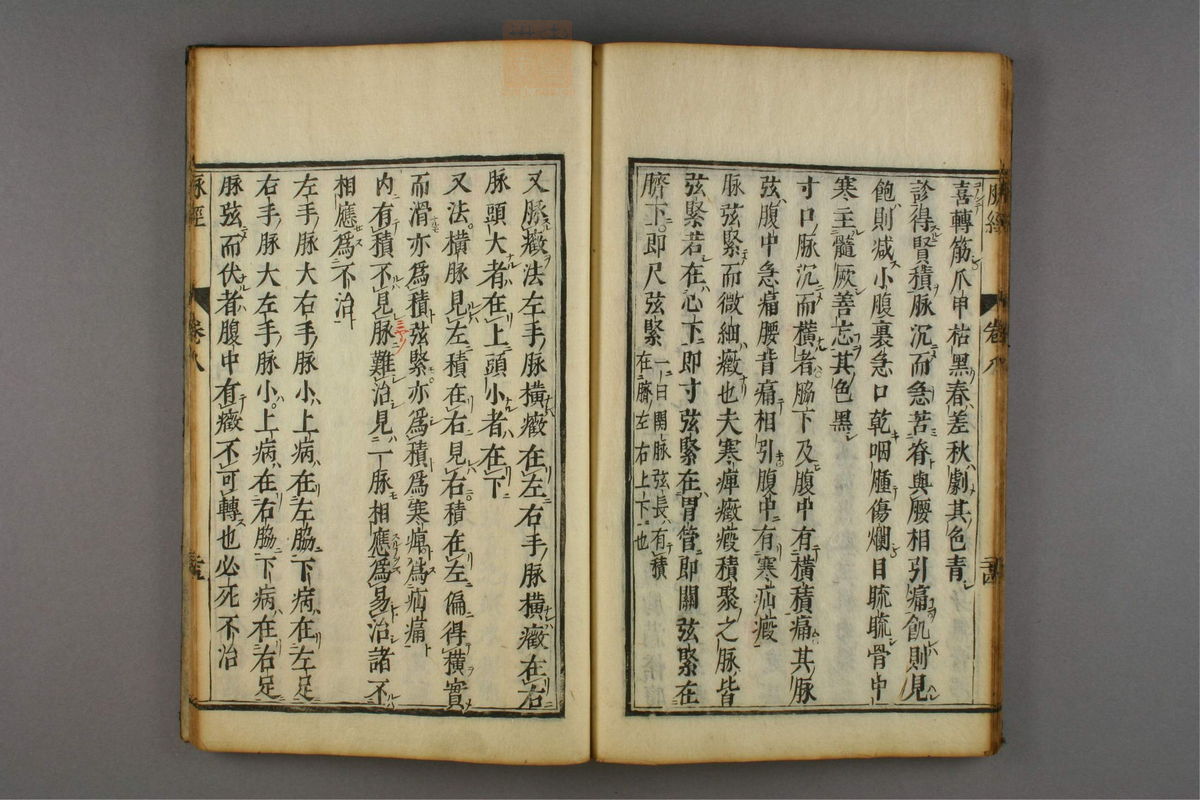 脉經 卷八
喜轉筋爪甲枯黑春差秋劇其色青
診得賢積脉沉而急苦脊與腰相引痛飢則見
飽則减小腹裏急口乾咽腫傷爛目䀮䀮骨中
寒主髓厥善忘其色黑
寸口脉沉而橫者脇下及腹中有橫積痛其脉
弦腹中急痛腰背痛相引腹中有寒疝瘕
脉弦緊而微細癥也夫寒痺癥瘕積聚之脉皆
弦緊若在心下即寸弦緊在胃管即關弦緊在
臍下即尺弦緊 一曰關脉弦長有積
在臍左右上下也
又脉癥法左手脉橫癥在左右手脉橫癥在右
脉頭大者在上頭小者在下
又法橫脉見左積在右見右積在左偏得橫實
而滑亦爲積弦緊亦爲積爲寒痺爲疝痛
内有積不見脉難治見一脉相應爲易治諸不
相應爲不治
左手脉大右手脉小上病在左脇下病在左足
右手脉大左手脉小上病在右脇下病在右足
脉弦而伏者腹中有癥不可轉也必死不治
脉經 卷八